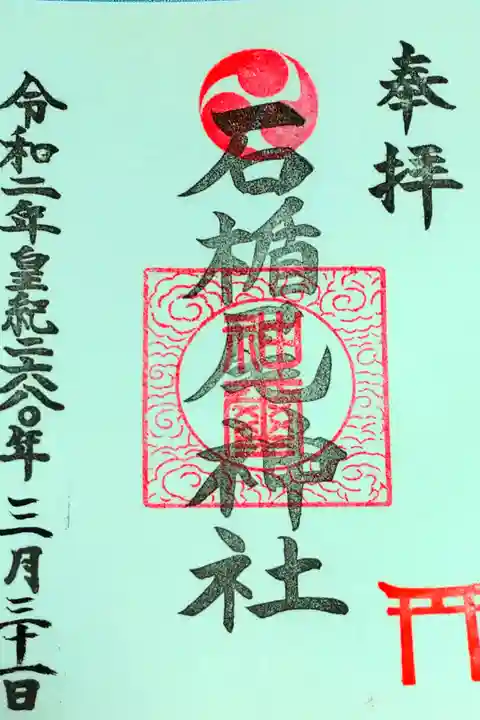 奉拝
石楯尾神社
令和二年皇紀二六八〇年三月三十一日